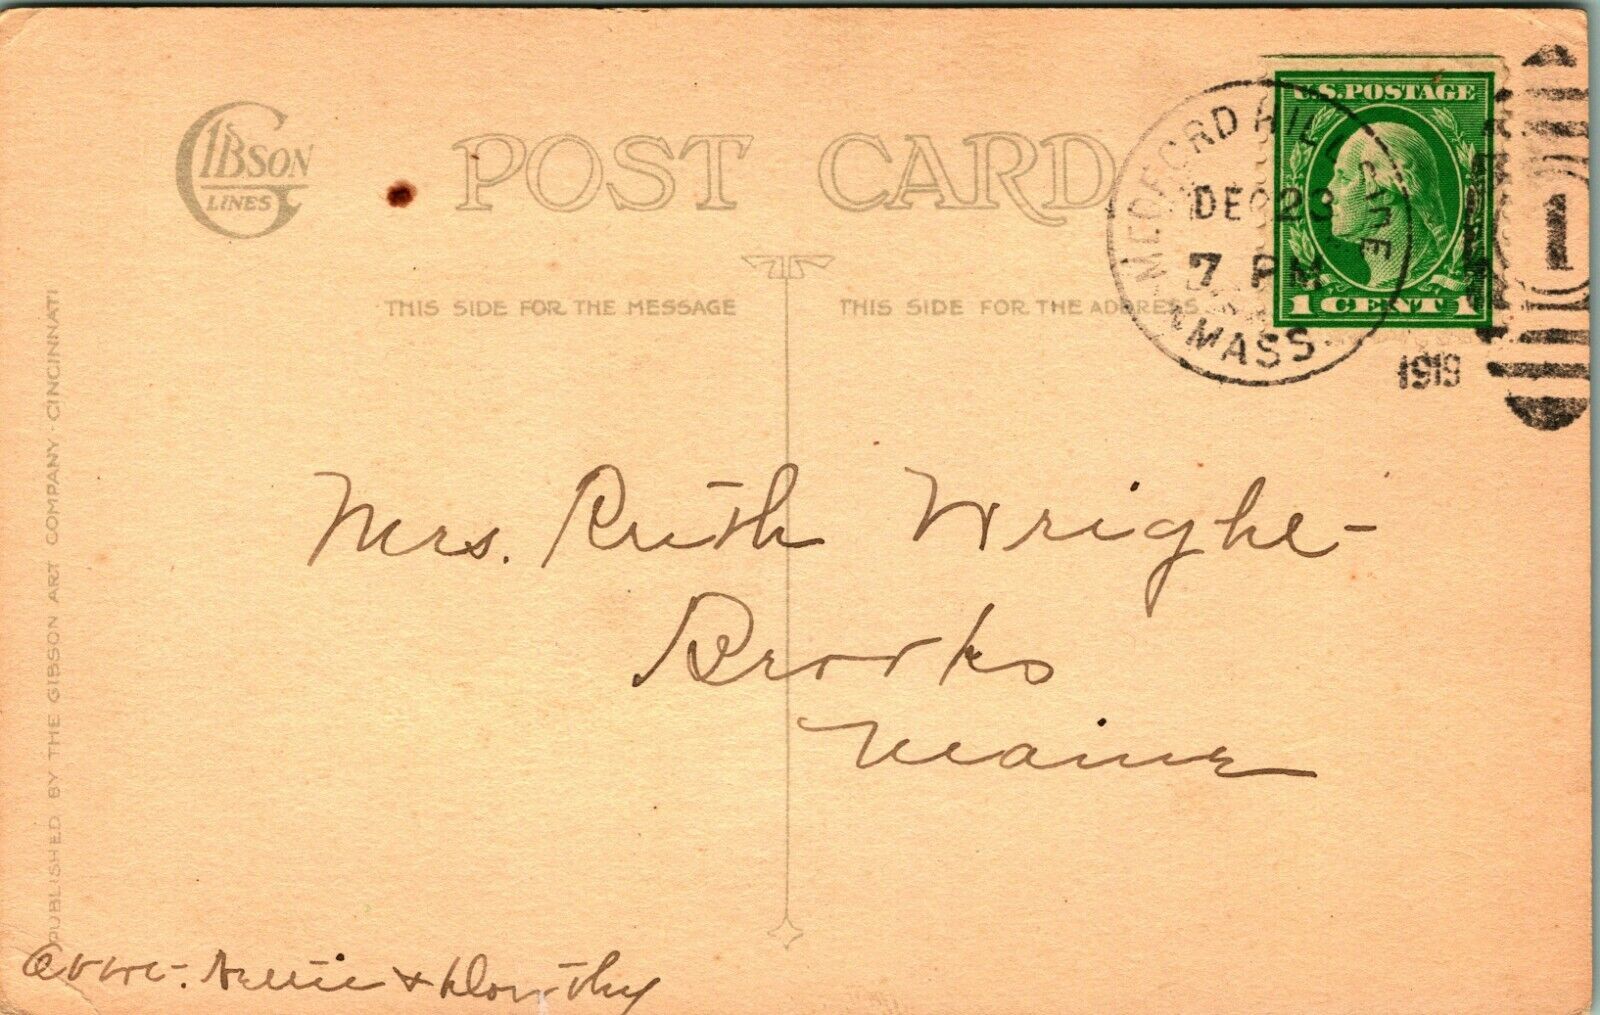 GIBSON LINES
POST CARD
THIS SIDE FOR THE MESSAGE
THIS SIDE FOR THE ADDRESS
U.S. POSTAGE
1 CENT 1
MEDFORD HILLSIDE
DEC 23
7 PM
MASS.
1919
1
Mrs. Ruth Wright
Brooks
Maine
Nettie & Dorothy
PUBLISHED BY THE GIBSON ART COMPANY · CINCINNATI